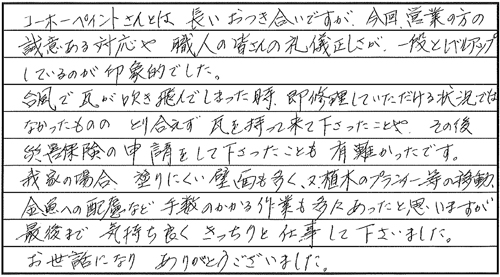 コーホーペイントさんとは、長いおつき合いですが、今回、営業の方の
誠意ある対応や 職人の皆さんの礼儀正しさが、一段とレベルアップ
しているのが印象的でした。
台風で瓦が吹き飛んでしまった時、即修理していただける状況では
なかったものの とり合えず 瓦を持って来て下さったことや、その後
災害保険の申請をして下さったことも 有難かったです。
我家の場合、塗りにくい壁面も多く、又、植木のプランター等の移動、
金魚への配慮など 手数のかかる作業も多々あったと思いますが
最後まで 気持ち良く きっちりと 仕事して下さいました。
お世話になり ありがとうございました。